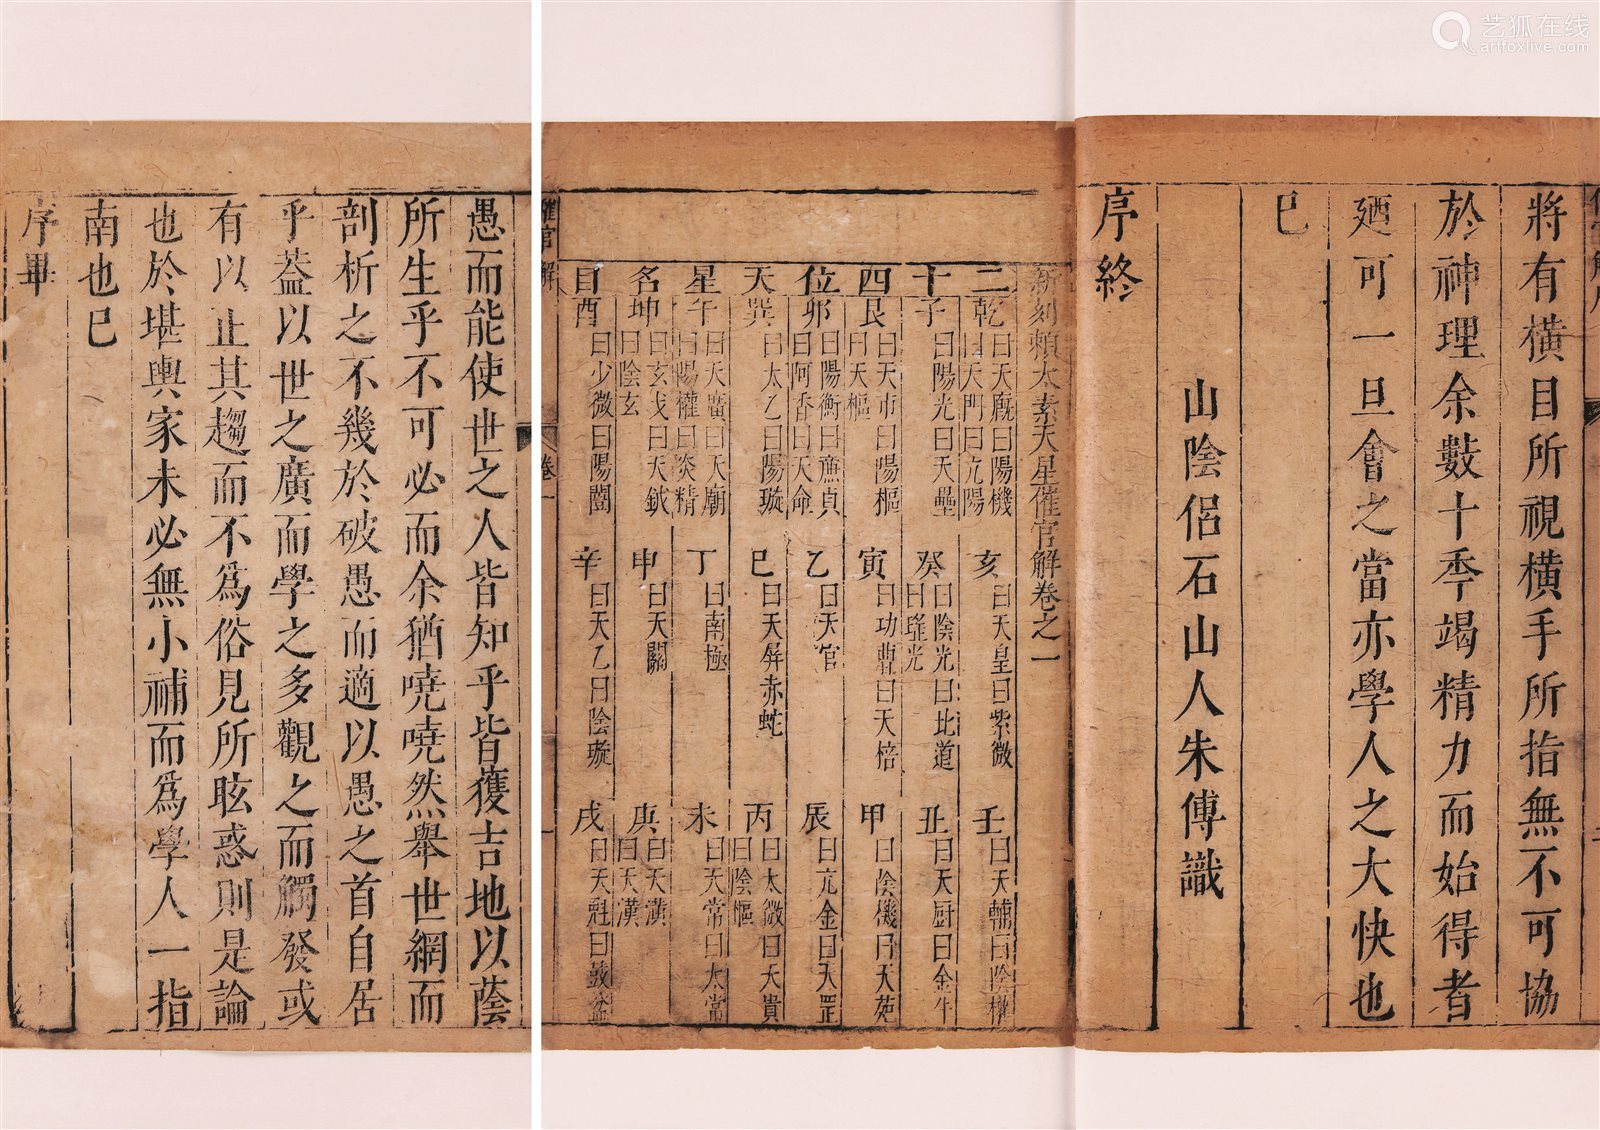 艺狐在线
artfoxlive.com
將有橫目所視橫手所指無不可協
於神理余數十季竭精力而始得者
廼可一旦會之當亦學人之大快也
已
山陰侶石山人朱傅識
序終
新刻賴太素天星催官解卷之一
二 乾 曰天廐曰陽機曰天門曰亢陽 亥 曰天皇曰紫微 壬 曰天輔曰陰權
十 子 曰陽光曰天壘 癸 曰陰光曰北道曰瑤光 丑 曰天厨曰金牛
四 艮 曰天市曰陽樞曰天樞 寅 曰功曹曰天棓 甲 曰陰機曰天苑
位 卯 曰陽衡曰廉貞曰阿香曰天命 乙 曰天官 辰 曰亢金曰天罡
天 巽 曰太乙曰陽璇 巳 曰天屏赤蛇 丙 曰太微曰天貴曰陰樞
星 午 曰天廣曰天廟曰陽權曰炎精 丁 曰南極 未 曰天常曰太常
名 坤 曰玄戈曰天鉞曰陰玄 申 曰天關 庚 曰天潢曰天漢
目 酉 曰少微曰陽闓 辛 曰天乙曰陰璇 戌 曰天魁曰鼓盆
催官解
卷一
一
愚而能使世之人皆知乎皆獲吉地以蔭
所生乎不可必而余猶嘵嘵然舉世網而
剖析之不幾於破愚而適以愚之首自居
乎葢以世之廣而學之多觀之而觸發或
有以止其趨而不爲俗見所眩惑則是論
也於堪輿家未必無小補而爲學人一指
南也已
序畢